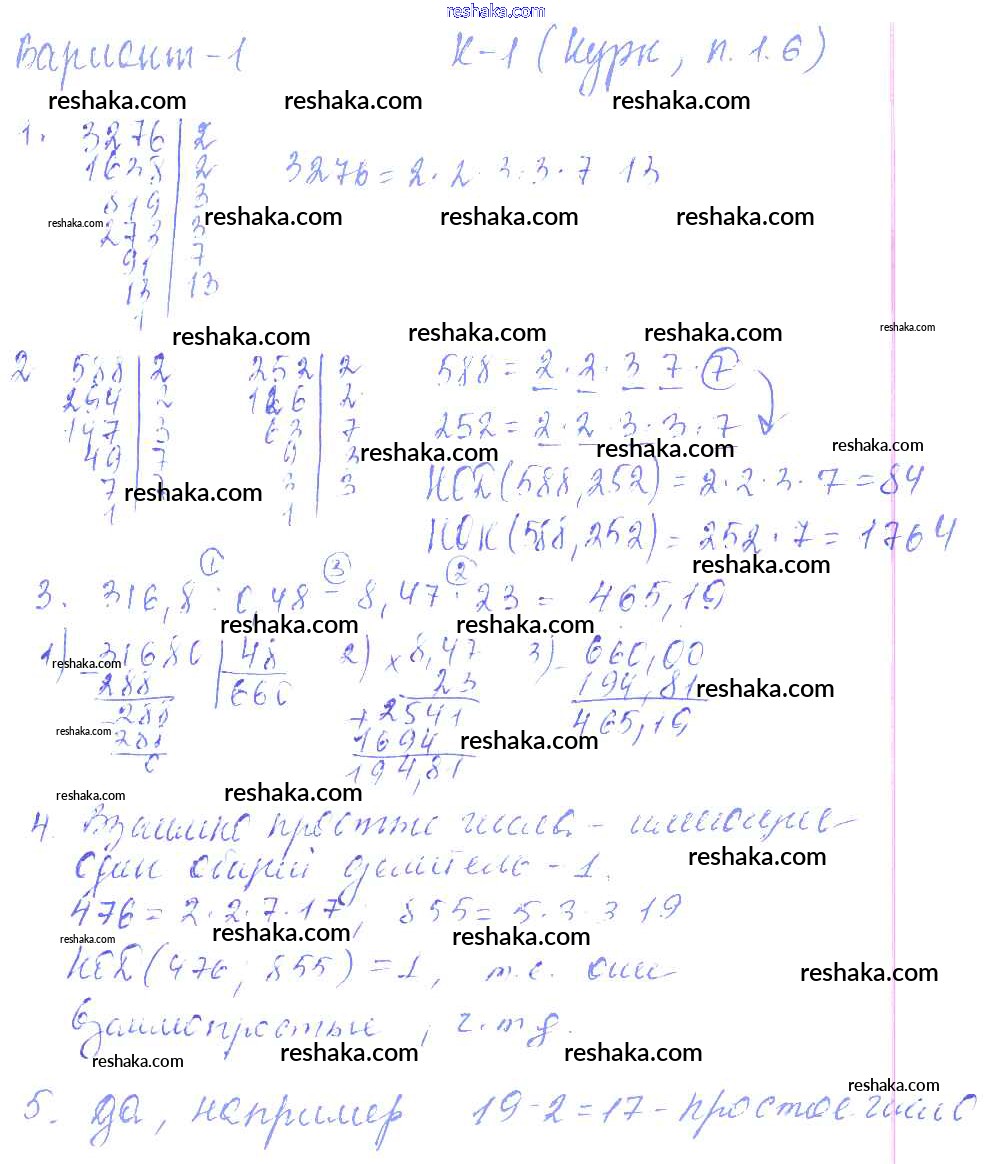 reshaka.com
Вариант-1 К-1 (Курк, п. 1.6)
reshaka.com reshaka.com reshaka.com
1. 3276 | 2
1638 | 2 3276 = 2 · 2 · 3 · 3 · 7 13
819 | 3
reshaka.com reshaka.com reshaka.com reshaka.com
273 | 3
91 | 7
13 | 13
1
reshaka.com reshaka.com reshaka.com reshaka.com
2 588 | 2 252 | 2 588 = 2 · 2 · 3 7 · 7
294 | 2 126 | 2 252 = 2 · 2 · 3 · 3 · 7
147 | 3 63 | 7
reshaka.com reshaka.com reshaka.com
49 | 7 9 | 3 НОД(588,252) = 2 · 2 · 3 · 7 = 84
7 | 7 3 | 3
reshaka.com
1 1 НОК(588,252) = 252 · 7 = 1764
reshaka.com
3. 316,8 : 0,48 - 8,47 · 23 = 465,19
reshaka.com reshaka.com
1) 31680 | 48 2) × 8,47 3) - 660,00
reshaka.com
288 | 660 23 194,81
reshaka.com
288 + 2541 465,19
reshaka.com reshaka.com
288 1694
0 194,81
reshaka.com reshaka.com
4. Взаимно простые числа - имеющие
reshaka.com
один общий делитель - 1.
476 = 2 · 2 · 7 · 17; 855 = 5 · 3 · 3 19
reshaka.com reshaka.com reshaka.com
НОД(476; 855) = 1, т.е. они
reshaka.com
взаимопростые, ч.т д.
reshaka.com reshaka.com reshaka.com
reshaka.com
5. да, например 19-2=17-простое число